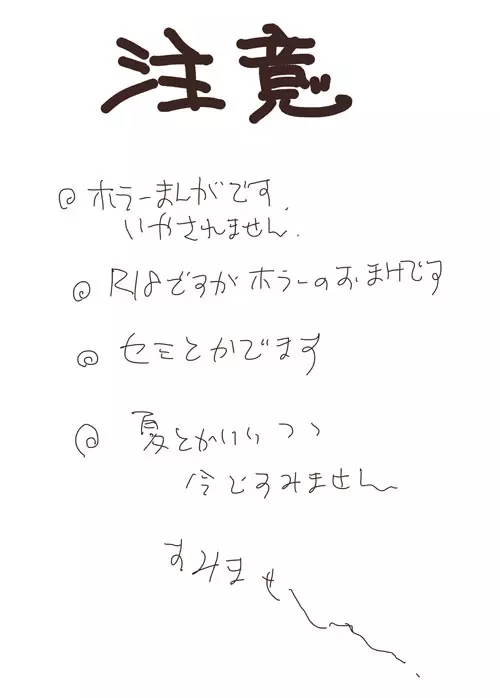 注意
◎ ホラーまんがです.
いやされません.
◎ R18ですがホラーのおまけです
◎ セミとかでます
◎ 夏とかいいつつ
今ですみません
すみません